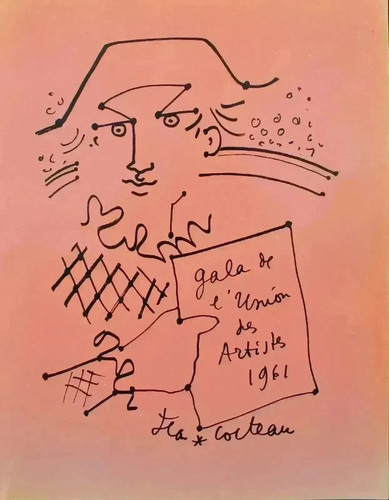 gala de
l'Union
des
Artistes
1961
Jean * Cocteau